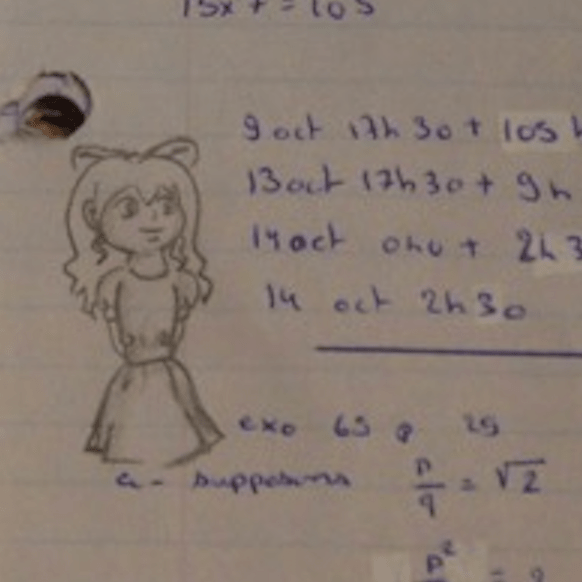 15x7 = 105
9 oct 17h30 + 105 h
13 oct 17h30 + 9h
14 oct 0h0 + 2h3
14 oct 2h30
exo 65 p 25
a - supposons p/q = √2
p²